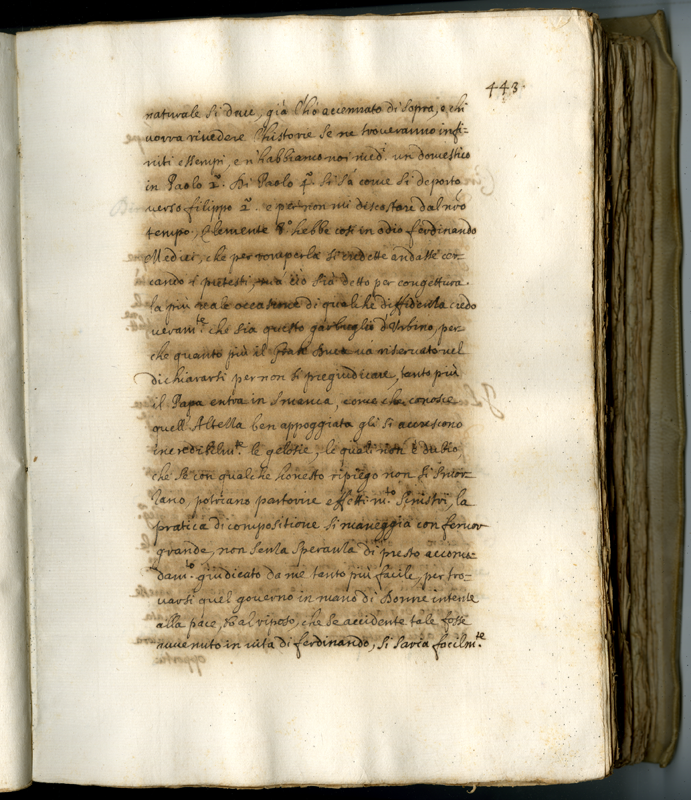 443.
naturale si deve, già l'hò accennato di sopra, e chi
vorrà rivedere l'historie se ne troveranno infi-
niti essempi, e n'habbiamo noi med.i un domestico
in Paolo 2.o Di Paolo 4.o si sà come si deportò
verso filippo 2.o e per non mi discostare dal nro
tempo, Clemente 8.o hebbe così in odio ferdinando
Medici, che per romperla si credette andasse cer-
cando i pretesti, mà ciò sia detto per congettura
la più reale occasione di qualche diffidenza credo
veram.te che sia questo garbuglio d'Urbino, per-
che quanto più il Gran Duca và riservato nel
dichiararsi per non si pregiudicare, tanto più
il Papa entra in smania, come che conosce
quell'Altezza ben appoggiata gli si accrescono
incredibilm.te le gelosie, le quali non è dubio
che se con qualche honesto ripiego non si smor-
zano, potriano partorire effetti m.to sinistri, la
pratica di compositione si maneggia con fervor
grande, non senza speranza di presto accomo-
dam.to giudicato da me tanto più facile, per tro-
varsi quel governo in mano di Donne intente
alla pace, et al riposo, che se accidente tale fosse
avvenuto in vita di ferdinando, si saria facilm.te